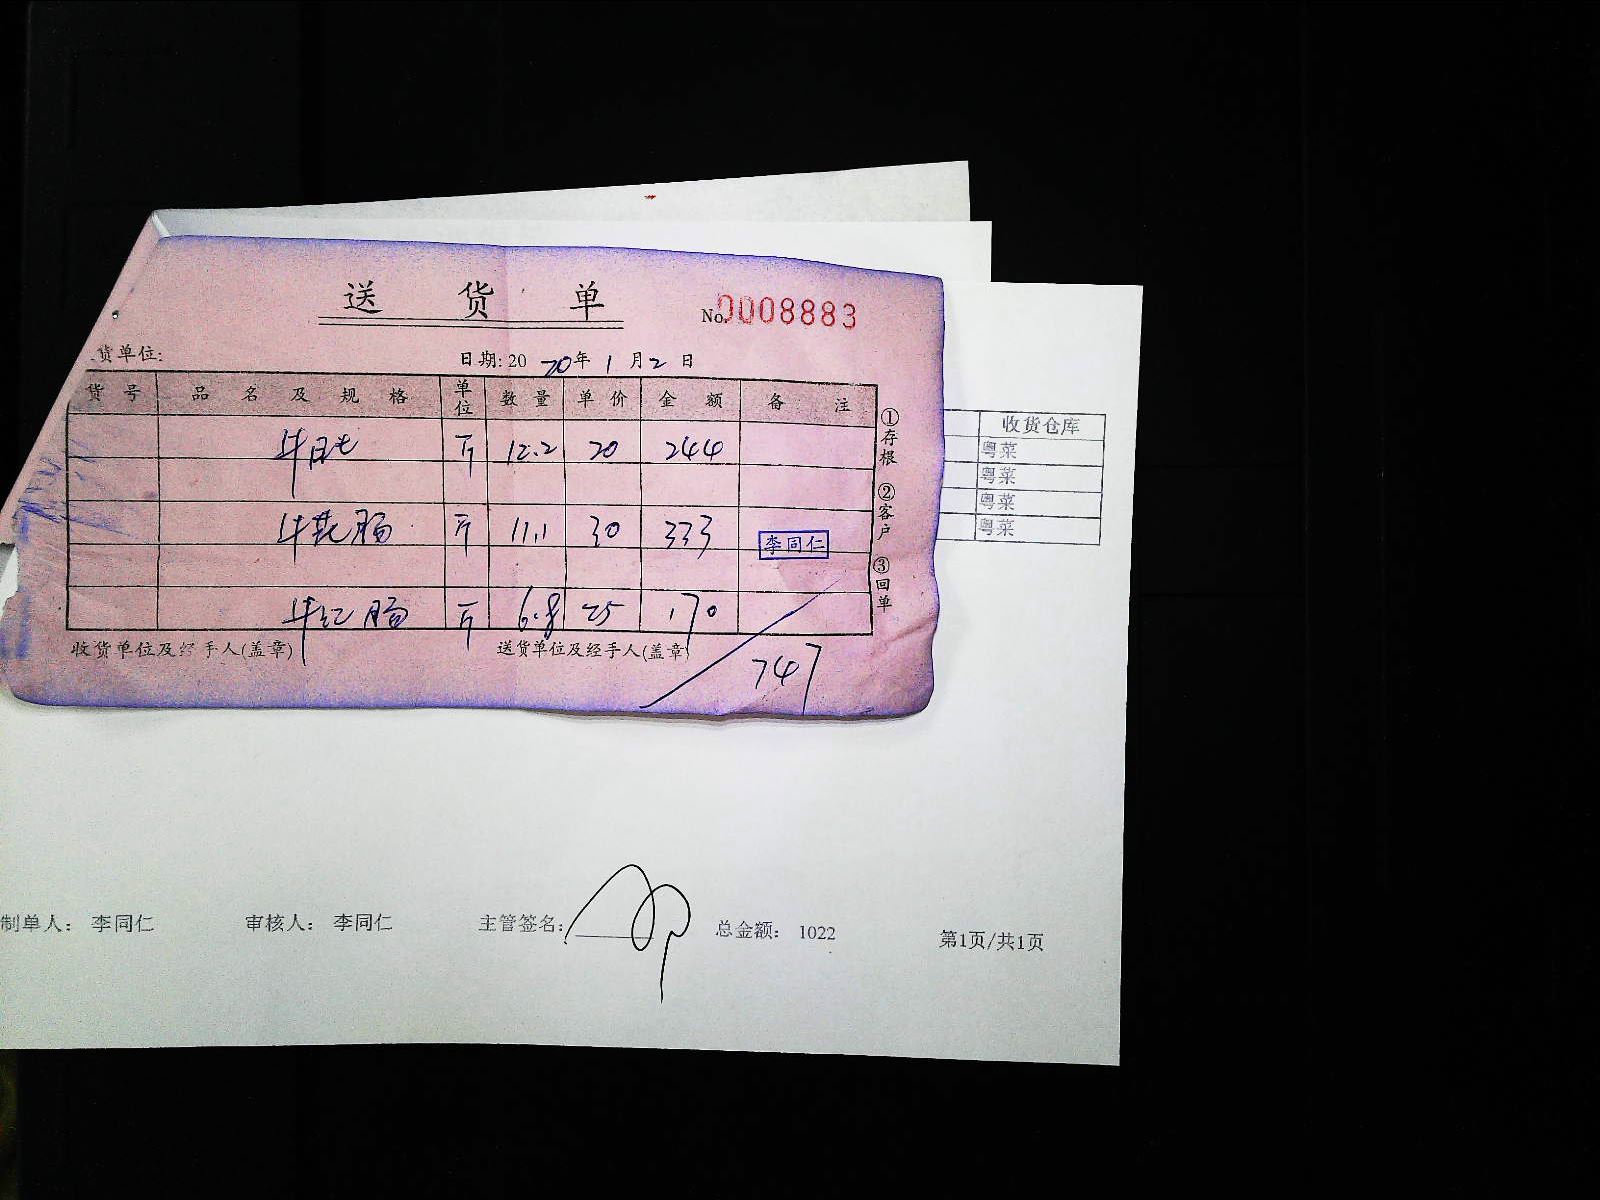 送 货 单
No.0008883
货单位:
日期: 2020年1月2日
货号 品名及规格 单位 数量 单价 金额 备注
斤 12.2 20 244
牛花肠 斤 11.1 30 333
李同仁
牛红肠 斤 6.8 25 170
①存根 ②客户 ③回单
收货单位及经手人(盖章)
送货单位及经手人(盖章)
747
收货仓库
粤菜
粤菜
粤菜
粤菜
制单人: 李同仁 审核人: 李同仁 主管签名: 总金额: 1022 第1页/共1页